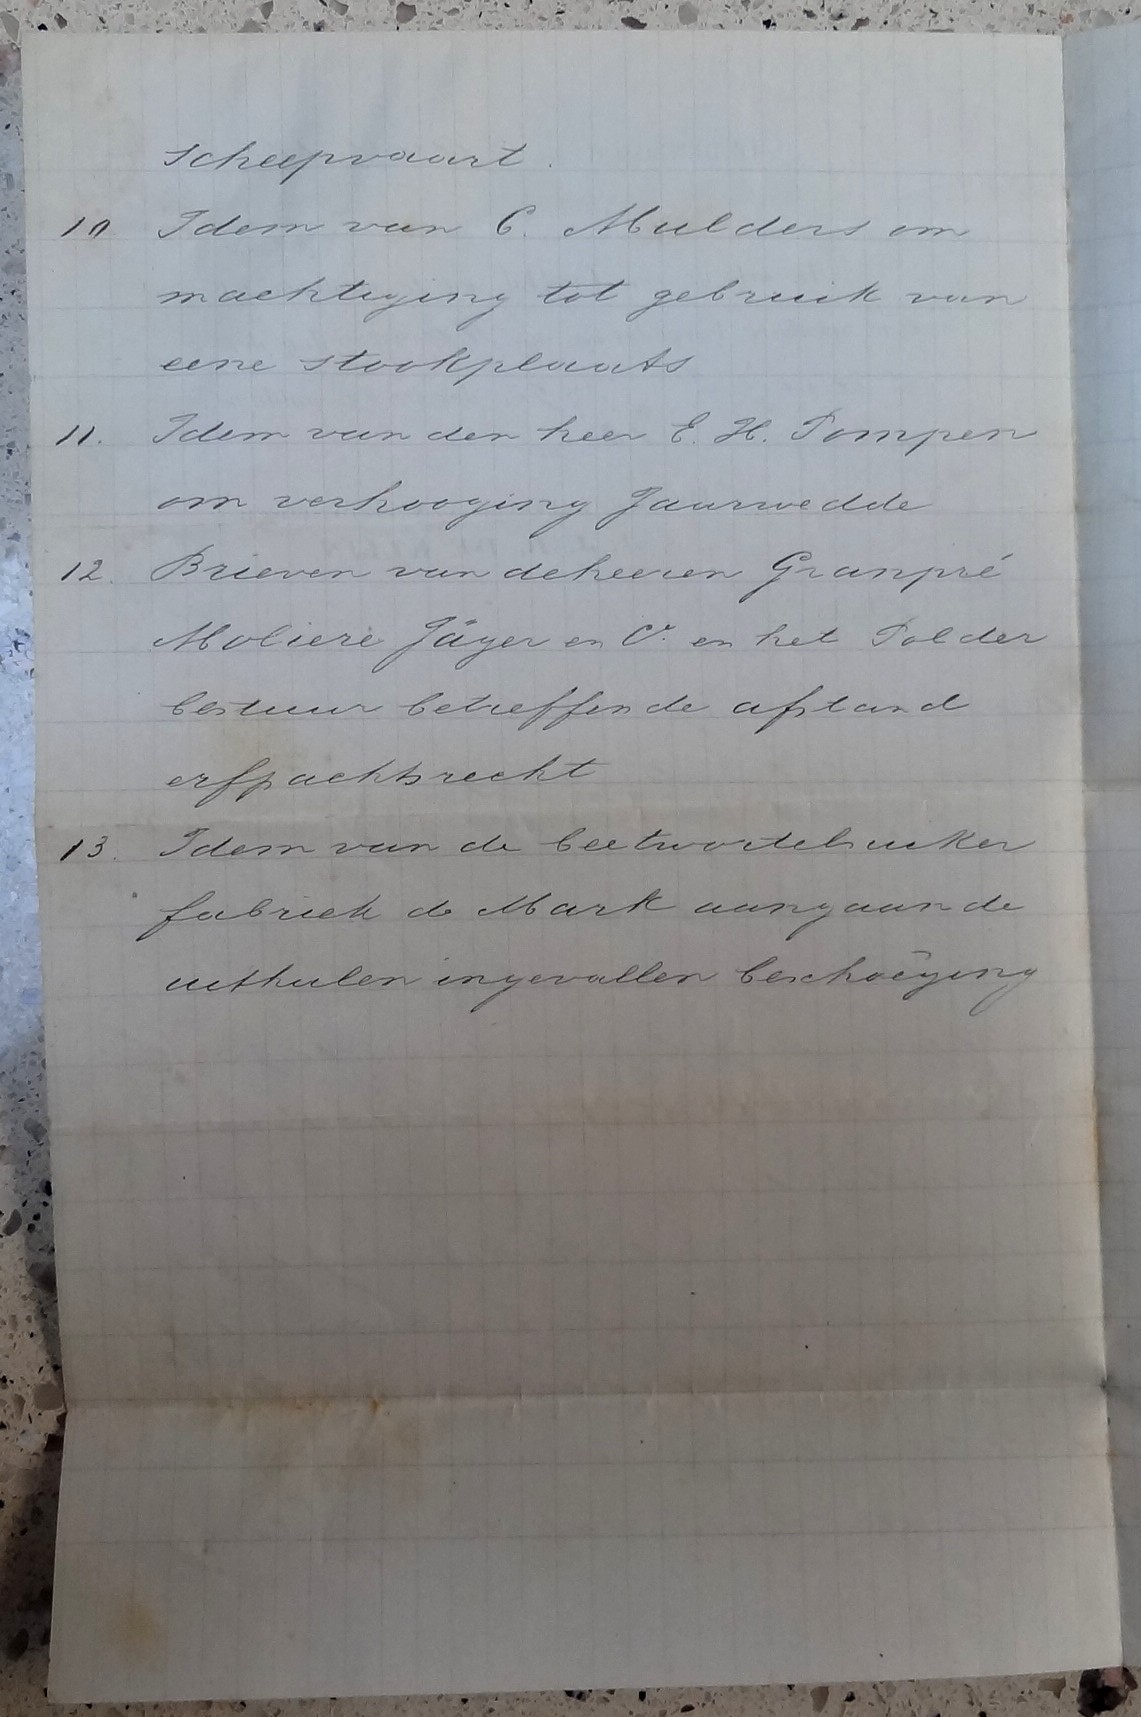 scheepvaart.
10 Idem van C. Mulders om
machtiging tot gebruik van
eene stookplaats
11. Idem van den heer E. H. Pompen
om verhooging Jaarwedde
12. Brieven van de heeren Granpré
Moliere Jäger en Co. en het Polder
bestuur betreffende afstand
erfpachtsrecht
13. Idem van de beetwortelsuiker
fabriek de Mark aangaande
uithalen ingevallen beschoeÿing